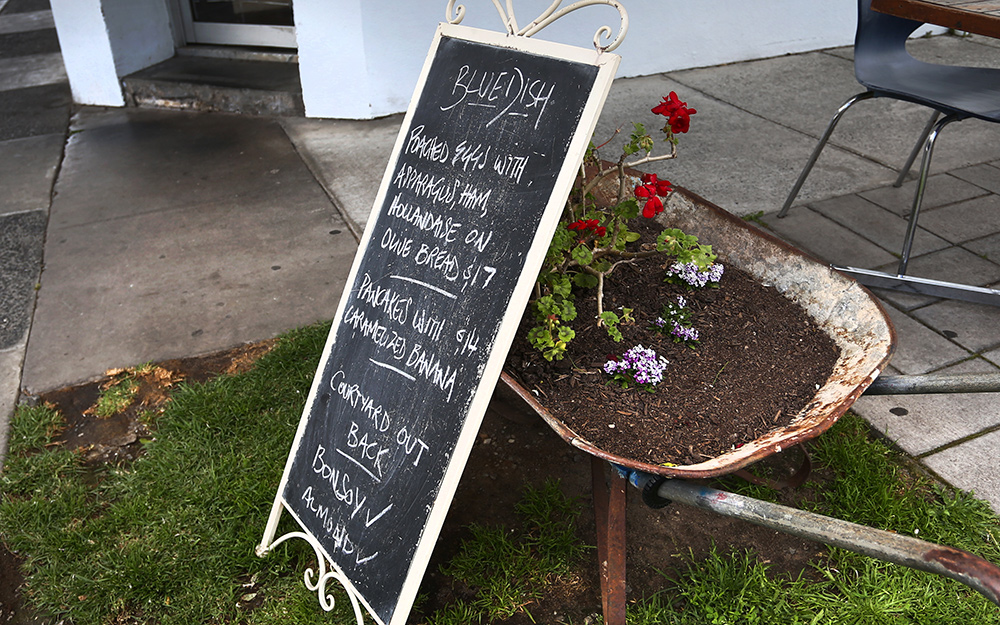 BLUE DISH
POACHED EGGS WITH
ASPARAGUS, HAM,
HOLLANDAISE ON
OLIVE BREAD $17
PANCAKES WITH $14
CARAMELIZED BANANA
COURTYARD OUT
BACK
BONSOY ✓
ALMOND ✓